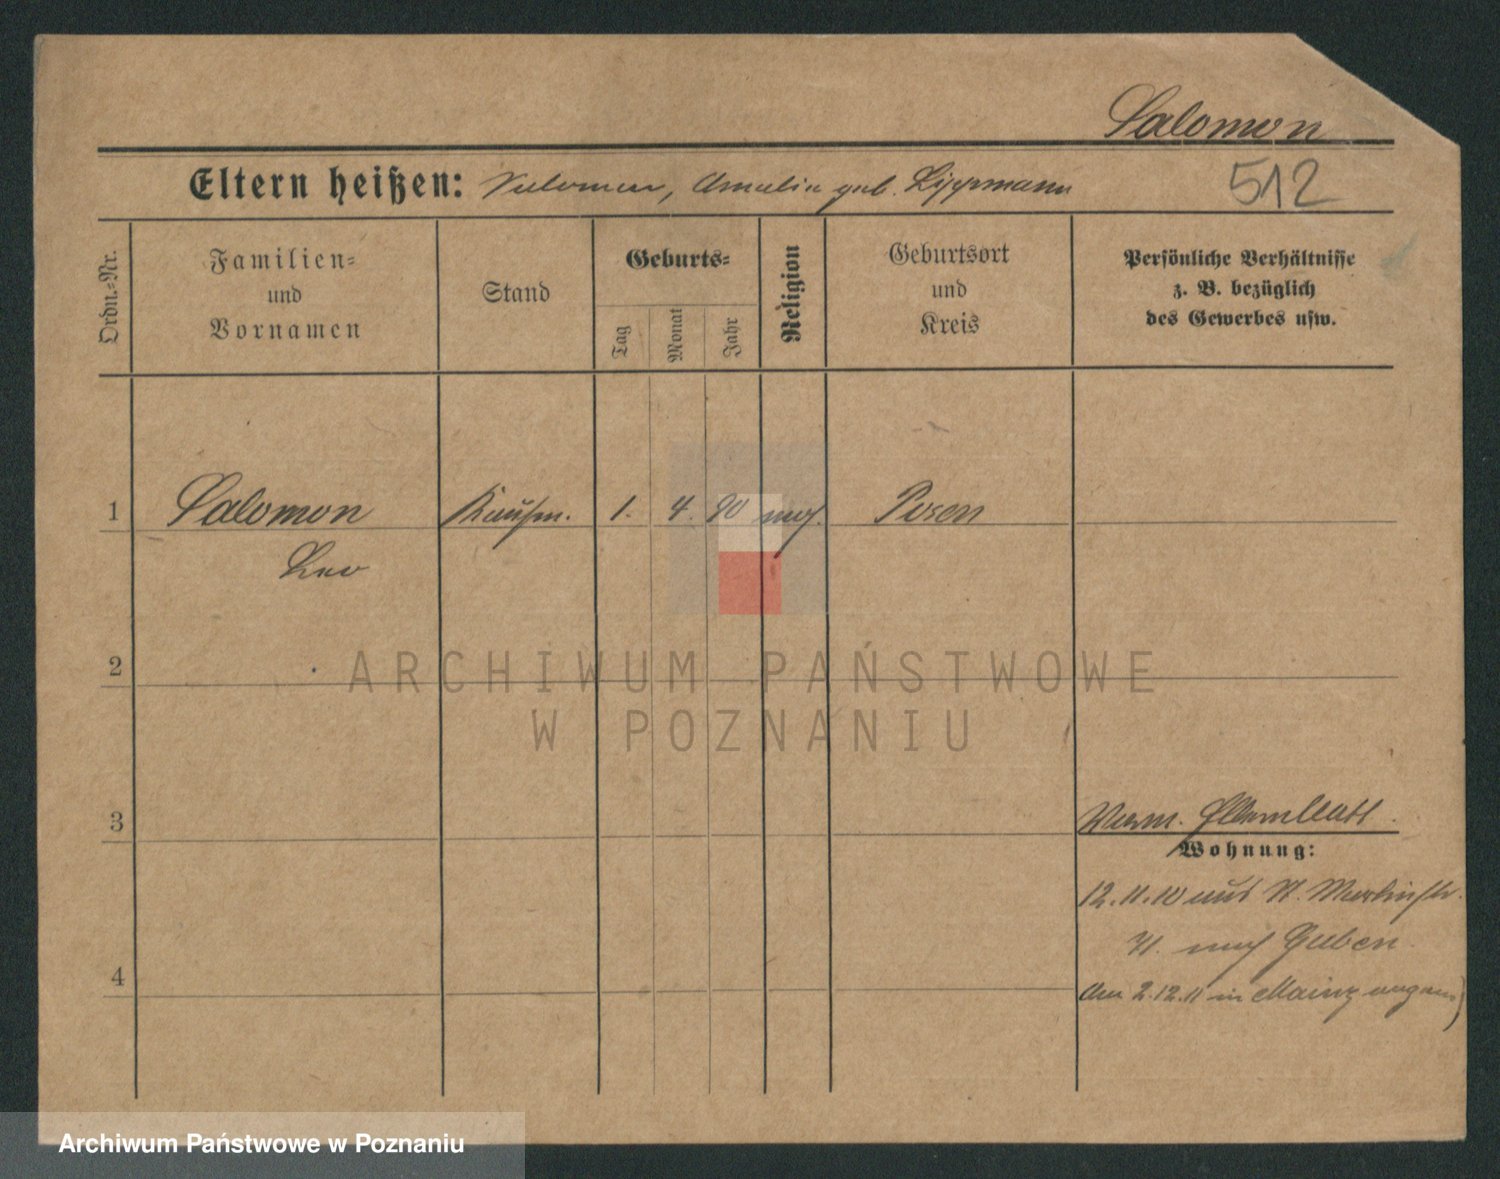 Salomon
512
Eltern heißen: Salomon, Amalie geb. Lippmann
Ordn.-Nr.
Familien-
und
Vornamen
Stand
Geburts-
Tag
Monat
Jahr
Religion
Geburtsort
und
Kreis
Persönliche Verhältnisse
z. B. bezüglich
des Gewerbes usw.
1 Salomon Kaufm. 1. 4. 90 mos. Posen
Leo
2
3
Wohnung:
12.11.10 aus St. Martinstr.
nach Guben
4
Am 2.12.11 in Mainz angem.
ARCHIWUM PAŃSTWOWE
W POZNANIU
Archiwum Państwowe w Poznaniu